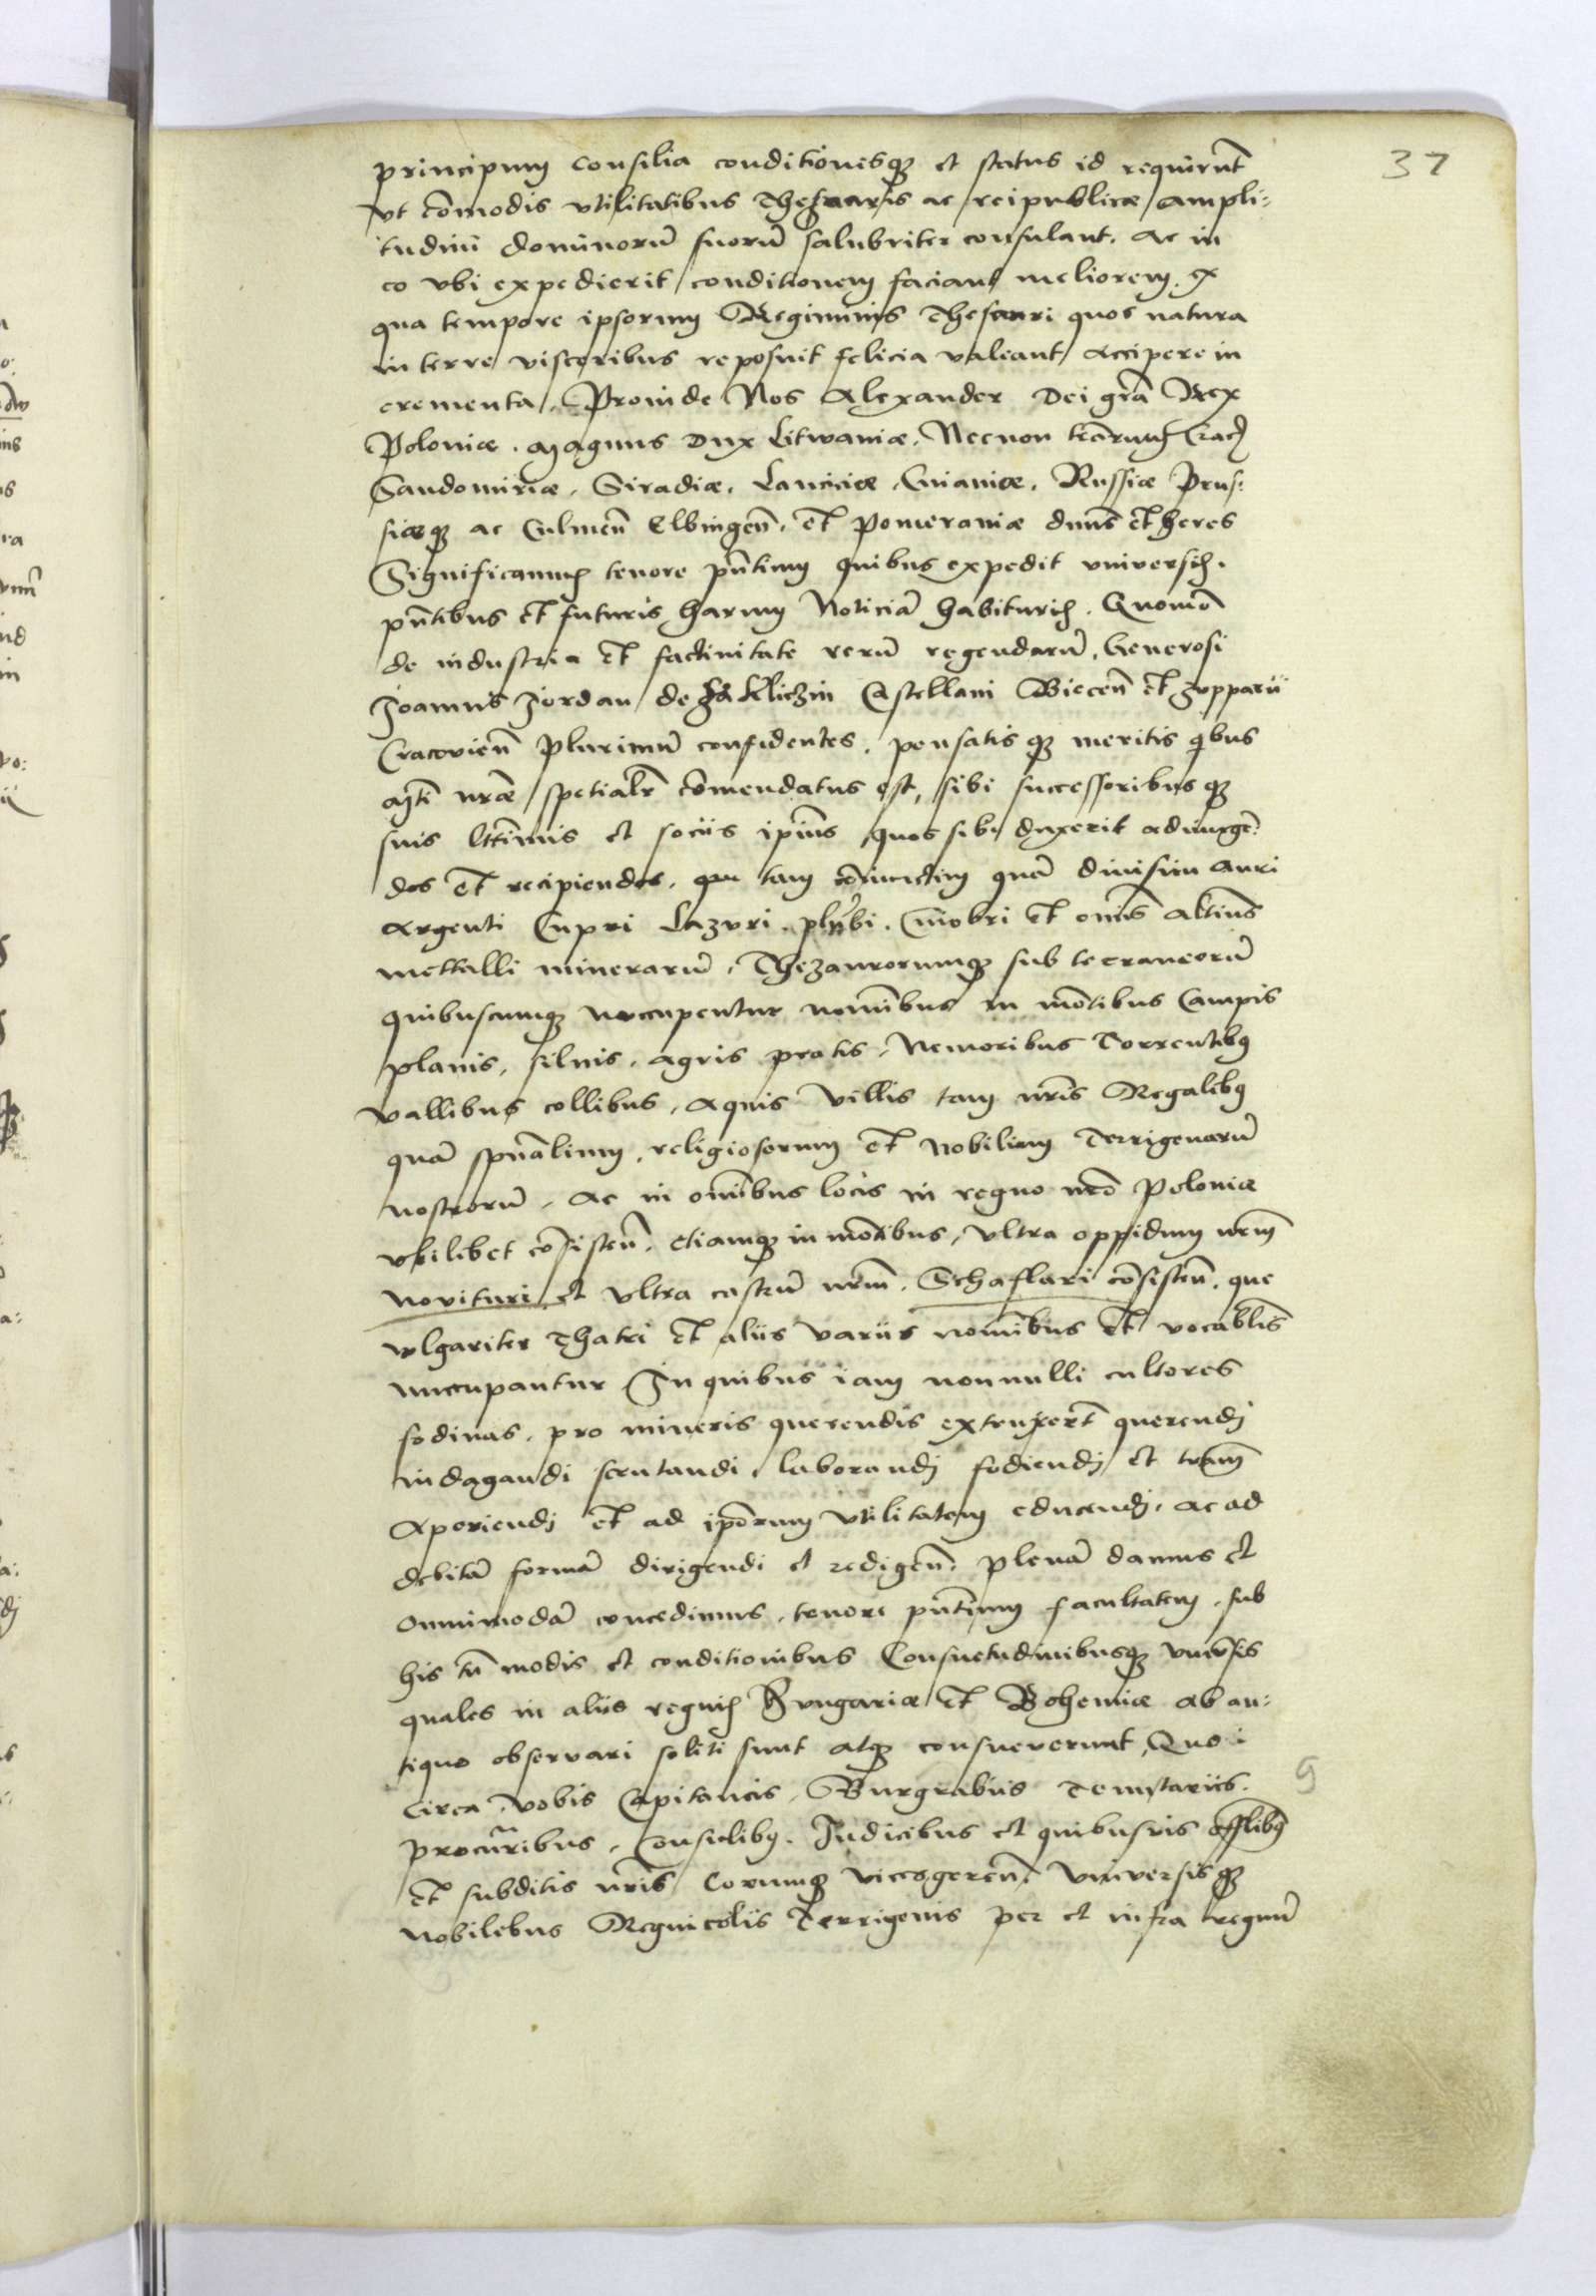 37
principum consilia conditionesqȝ et status id requirunt
vt com̄odis vtilitatibus Thesauris ac reipublicæ ampli:
tudini dominorū suorū salubriter consulant. Ac in
eo vbi expedierit conditionem faciant meliorem. ex
qua tempore ipsorum Regiminis Thesauri quos natura
in terre visceribus reposuit felicia valeant accipere in
crementa. Proinde Nos Alexander Dei gr̄a Rex
Poloniæ. Magnus Dux Litwaniæ. Necnon terrarum Crac
Sandomiriæ. Siradiæ. Lanciciæ. Cuiaviæ. Russiæ Prus:
siæqȝ ac Culmen̄ Elbingen̄. et Pomeraniæ dnūs et heres
Significamus tenore pn̄tium quibus expedit vniversis.
pn̄tibus et futuris harum Noticiā habituris. Quomō
de industria et factivitate rerū regendarū. Generosi
Joannis Jordan de Zakliczin Castellani Biecen̄ et Zupparii
Cracovien̄ Plurimū confidentes. pensatis qȝ meritis qbus
Mti nr̄æ spetialr̄ com̄endatus est, sibi successoribus qȝ
suis lttīmis et sociis ipīus quos sibi duxerit adiunge:
dos et recipiendos. tam coniunctim quā divisim Auri
Argenti Cupri Lazuri. plūbi. Cinobri et om̄is Altīus
mettalli minerarū. Thezaurorumqȝ sub terraneorū
quibuscumqȝ nuccupentur nomībus in mōtibus Campis
planis. silvis. Agris pratis. Nemoribus Torrentibȝ
vallibus collibus. Aquis Villis tam nr̄is Regalibȝ
quā spūalium. religiosorum et Nobilium Terrigenarū
nostrorū. Ac in om̄ibus locis in regno nr̄o Poloniæ
vbilibet cōsisten̄. etiamqȝ in mōtibus. Vltra oppidum nr̄m
Novituri et Vltra castrū nr̄m. Schaflari cōsisten̄. que
vulgariter Thatri et aliis variis nomībus et vocablis
nuccupantur In quibus iam nonnulli cultores
fodinas. pro mineris querendis extruxert̄ querendj
indagandi scrutandi. laborandj fodiendj et terram
Aperiendj et ad ipōrum vtilitatem educendj. Ac ad
debitā formā dirigendi et redigen̄. plenā damus et
Omnimodā concedimus. tenore pn̄tium facultatem. sub
his tn̄ modis et conditionibus Consuetudinibusqȝ vniūsis
quales in aliis regnis Hungariæ et Bohemiæ ab an:
tiquo observari soliti sunt atqȝ consueverunt. Quo i
circa. vobis Capitaneis. Burgrabiis Tenutariis.
procur̄ibus. Consulibȝ. Judicibus et quibusvis offlibȝ
et subditis nr̄is Eorumqȝ vicesgeren̄. Vniversisqȝ
Nobilibus Regnicolis Terrigenis per et infra regnū